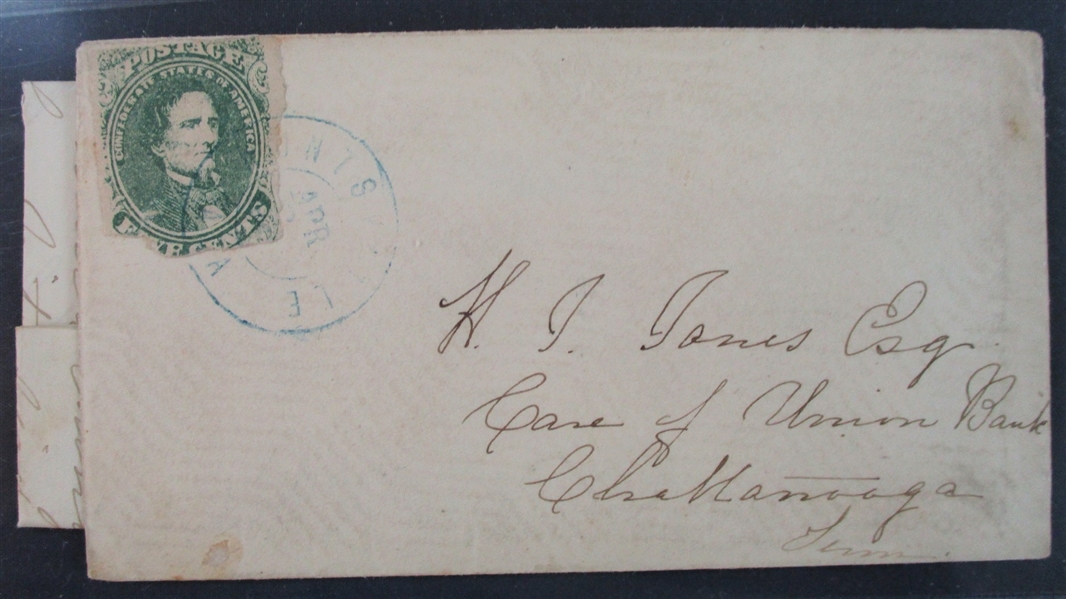 POSTAGE
CONFEDERATE STATES OF AMERICA
FIVE CENTS
APR
H. J. Jones Esq.
Care of Union Bank
Chattanooga
Tenn.